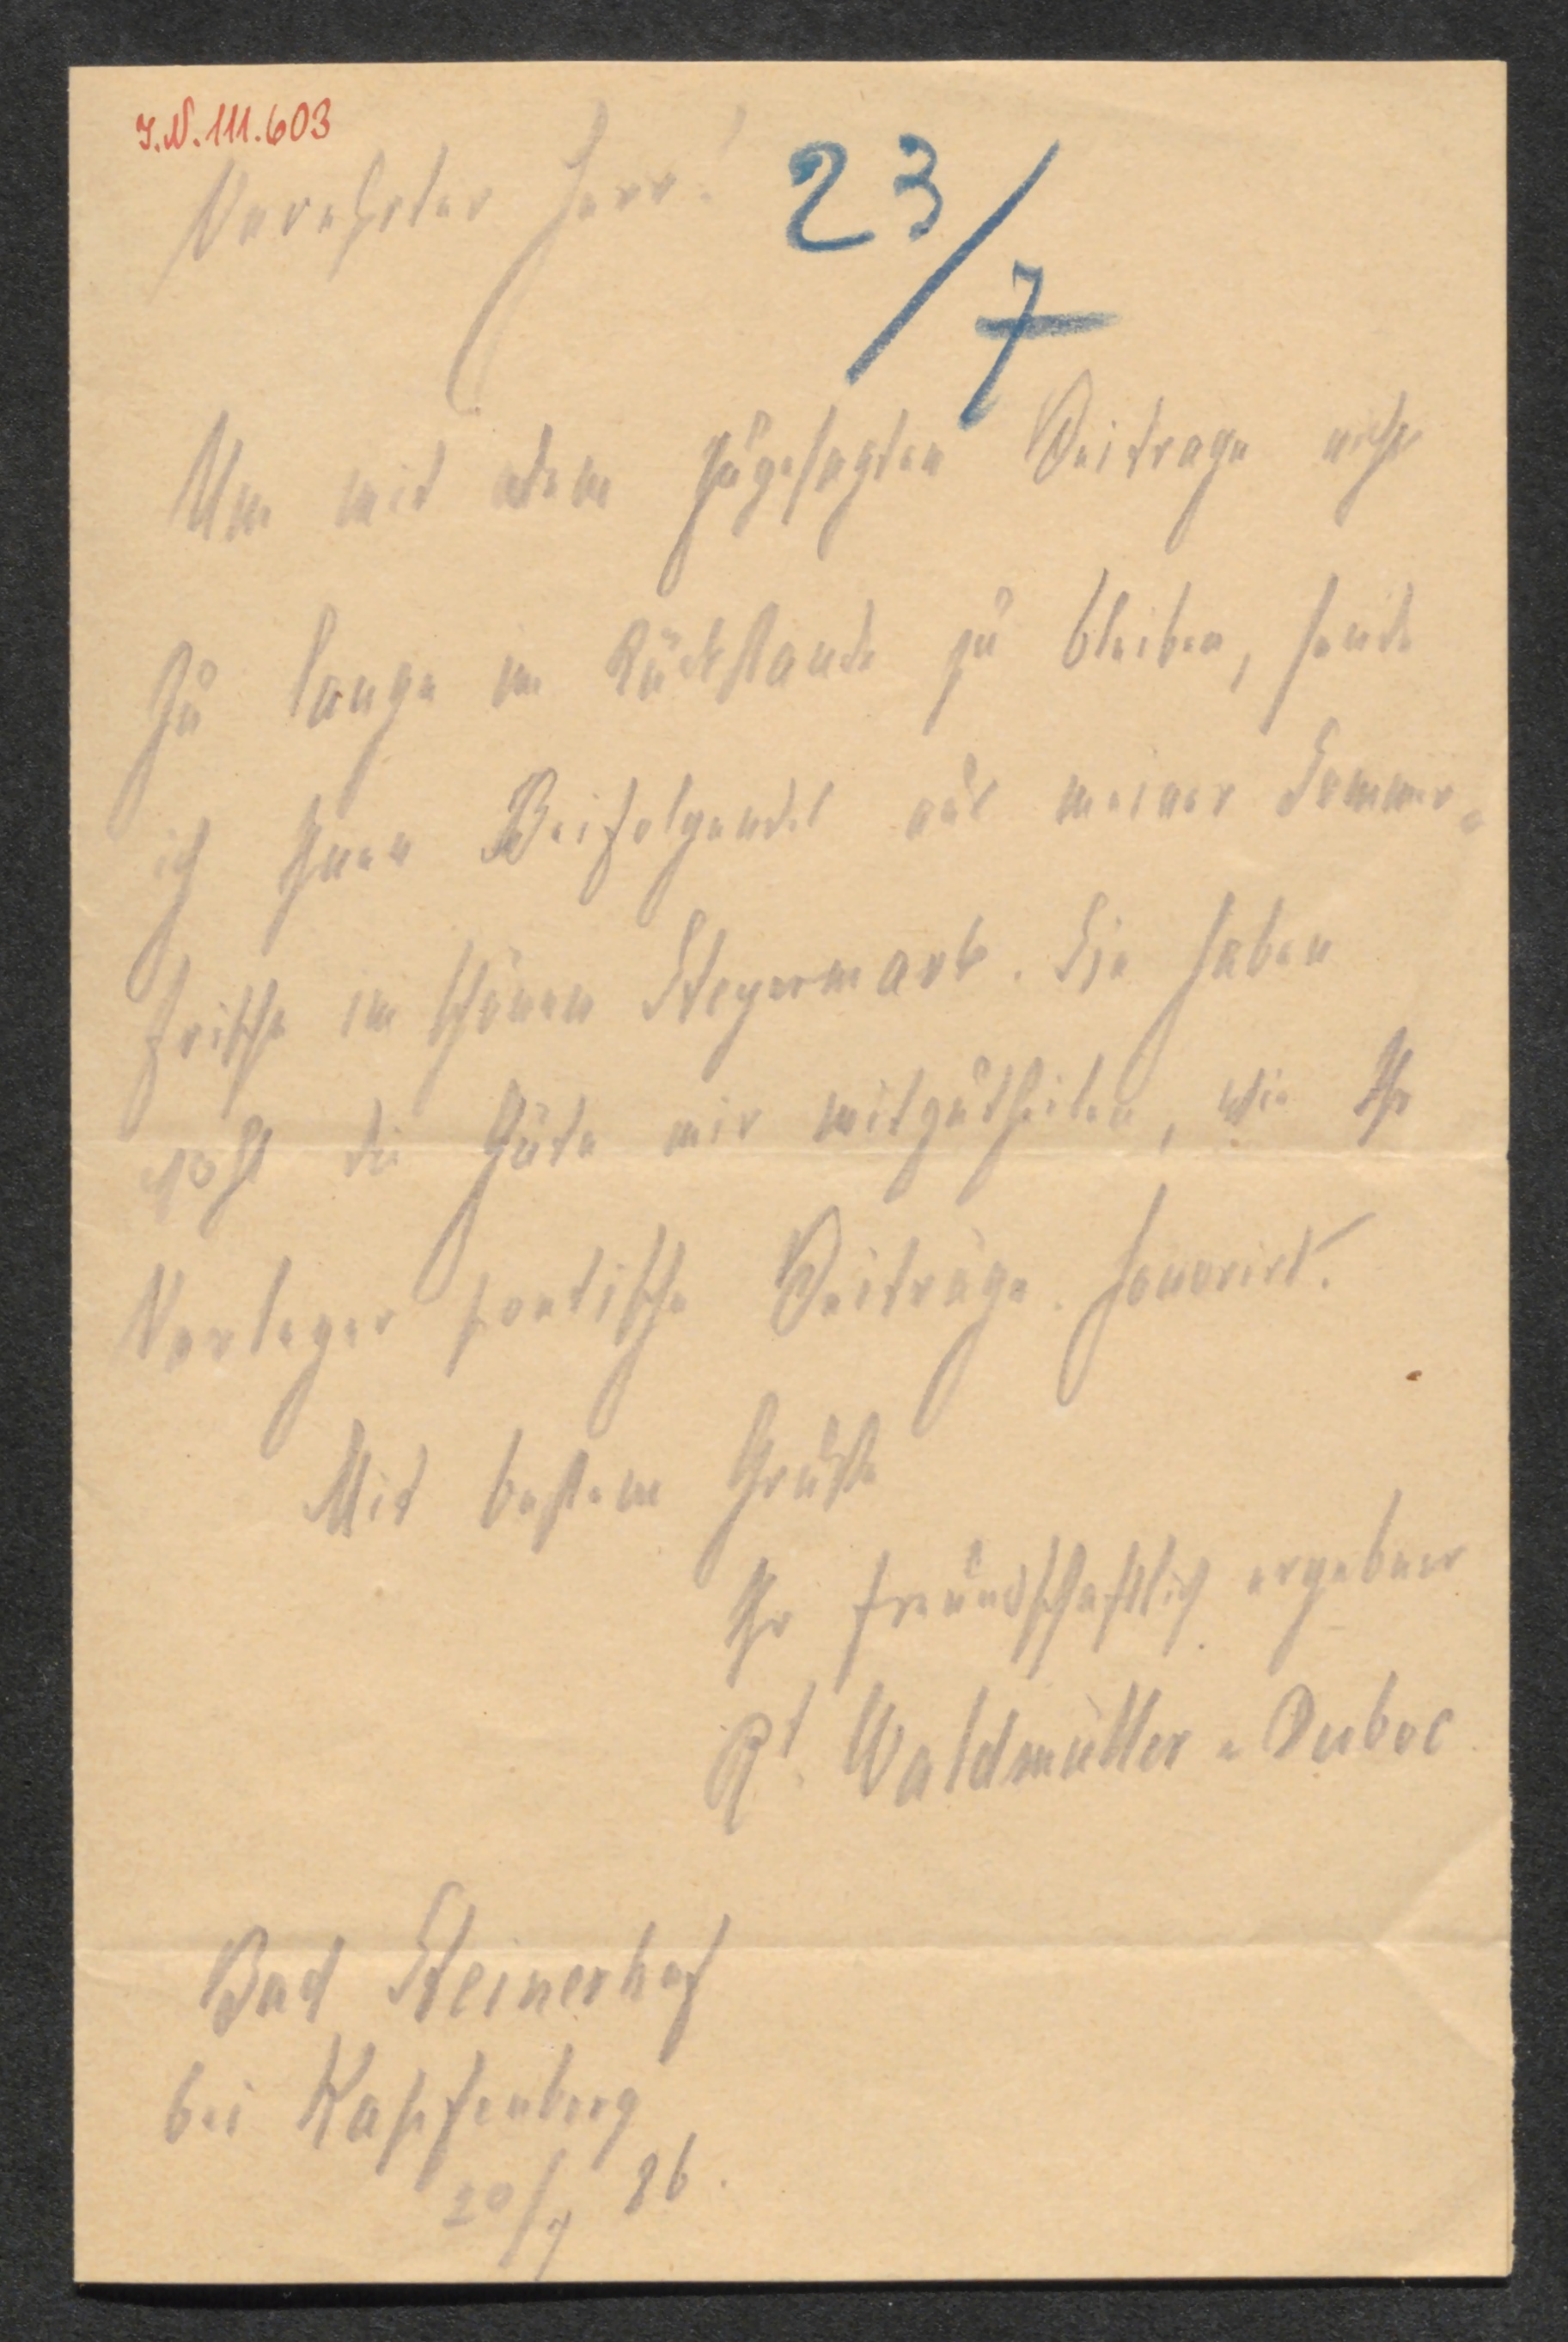 I.N. 111.603
Verehrter Herr!
23/7
Um mit dem zugesagten Beitrage nicht
zu lange im Rückstande zu bleiben, sende
ich Ihnen Beifolgendes aus meiner Sommer-
frische im schönen Steyermark. Sie haben
wohl die Güte mir mitzutheilen, wie Ihr
Verleger poetische Beiträge honorirt.
Mit bestem Gruße
Ihr freundschaftlich ergebner
Rd. Waldmüller-Duboc
Bad Steinerhof
bei Kapfenberg
20/7 86.